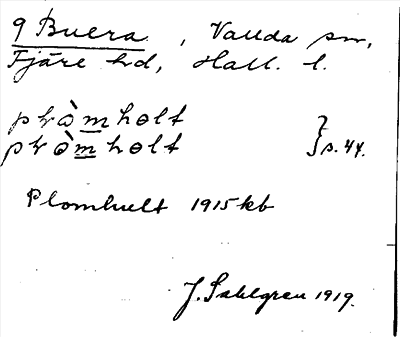 9 Buera , Vallda sn,
Fjäre hd, Hall. l.
plòmholt
plòmholt } s. 44.
Plomhult 1915 kb
J. Sahlgren 1919.